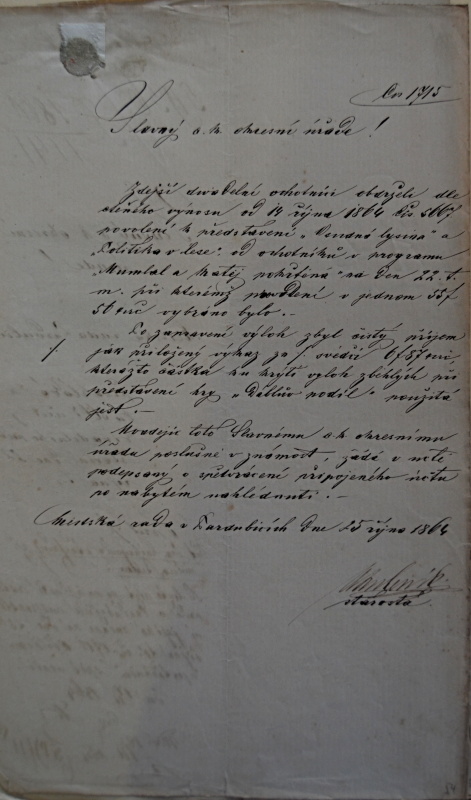 Čís 1715
Slavný c. k. okresní úřade!
Zdejší divadelní ochotníci obdrželi dle
ctěného výnosu od 14 října 1864 čís.
povolení k představení „Osudná lysina" a
od ochotníků v programu
na den 22. t.
m. při kterémž v jednom 55 f
50 vybráno bylo. –
Po zapravení výloh zbyl čistý příjem
jak přiložený výkaz za ·/. svědčí
kterážto částka ku krytí výloh zběhlých při
představení hry „Ďáblův podíl" použitá
jest. –
Uvádějíc toto Slavnému c. k. okresnímu
úřadu poslušně v známost, žádá v úctě
podepsaný o zpětvrácení připojeného účtu
po nabytém nahlédnutí. –
Městská rada v Pardubicích dne 25 října 1864
starosta